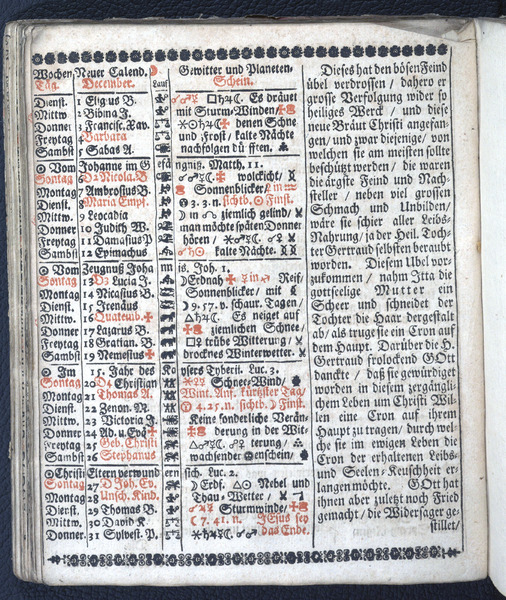 Wochen Neuer Calend.
Tag. December. Lauf
Dienst. 1 Eligius B.
Mittw. 2 Bibina J.
Donner 3 Francisc. Xav.
Freytag 4 Barbara
Sambst 5 Sabas A.
Vom Johanne im G
Sontag 6 D2 Nicola. B
Montag 7 Ambrosius B.
Dienst. 8 Maria Empf.
Mittw. 9 Leocadia
Donner 10 Judith W.
Freytag 11 Damasius P
Sambst 12 Epimachus
Vom Zeugnuß Joha
Sontag 13 D3 Lucia J.
Montag 14 Nicasius B.
Dienst. 15 Irenäus
Mittw. 16 Quatemb.
Donner 17 Lazarus B.
Freytag 18 Gratian. B.
Sambst 19 Nemesius
Im 15. Jahr des
Sontag 20 D4 Christian
Montag 21 Thomas A.
Dienst. 22 Zenon. M.
Mittw. 23 Victoria J.
Donner 24 Ad. u. Eva
Freytag 25 Geb. Christi
Sambst 26 Stephanus
Christi Eltern verwund
Sontag 27 D Joh. Ev.
Montag 28 Unsch. Kind.
Dienst. 29 Thomas B.
Mittw. 30 David K
Donner. 31 Sylvest. P.
Gewitter und Planeten-
Schein.
Es dräuet
mit Sturm-Winden/
denen Schne
und Frost/ kalte Nächte
nachfolgen dürfften.
efängniß. Matth. 11.
wolckicht/
Sonnenblicker/
3. 3. n. sichtb. Finst.
in ziemlich gelind/
man möchte späten Donner
hören/
kalte Nächte.
nnis. Joh. 1.
Erdnah in Reif/
Sonnenblicker/ mit
9. 57. v. schaur. Tagen/
Es neiget auf
ziemlichen Schnee/
trübe Witterung/
drocknes Winterwetter.
Kaysers Tyberii. Luc. 3.
Schnee-Wind/
Wint. Anf. kürtzster Tag/
4. 25. n. sichtb. Finst.
Keine sonderliche Verän-
derung in der Wit-
terung/
wachsender Menschein/
ern sich. Luc. 2.
Erdf. Nebel und
Thau-Wetter/
Sturmwinde/
7. 41. n. JEsus sey
das Ende.
Dieses hat den bösen Feind
übel verdrossen/ dahero er
grosse Verfolgung wider so
heiliges Werck/ und diese
neue Bräut Christi angefan-
gen/ und zwar diejenige/ von
welchen sie am meisten sollte
beschützt werden/ die waren
die ärgste Feind und Nach-
steller/ neben viel grossen
Schmach und Unbilden/
wäre sie schier aller Leibs-
Nahrung/ ja der Heil. Toch-
ter Gertraud selbsten beraubt
worden. Diesem Ubel vor-
zukommen/ nahm Itta die
gottseelige Mutter ein
Scheer und schneidet der
Tochter die Haar dergestalt
ab/ als truge sie ein Cron auf
dem Haupt. Darüber die H.
Gertraud frolockend GOtt
danckte/ daß sie gewürdiget
worden in diesem zergängli-
chem Leben um Christi Wil-
len eine Cron auf ihrem
Haupt zu tragen/ durch wel-
che sie im ewigen Leben die
Cron der erhaltenen Leibs-
und Seelen-Keuschheit er-
langen möchte. GOtt hat
ihnen aber zuletzt noch Fried
gemacht/ die Widersager ge-
stillet/